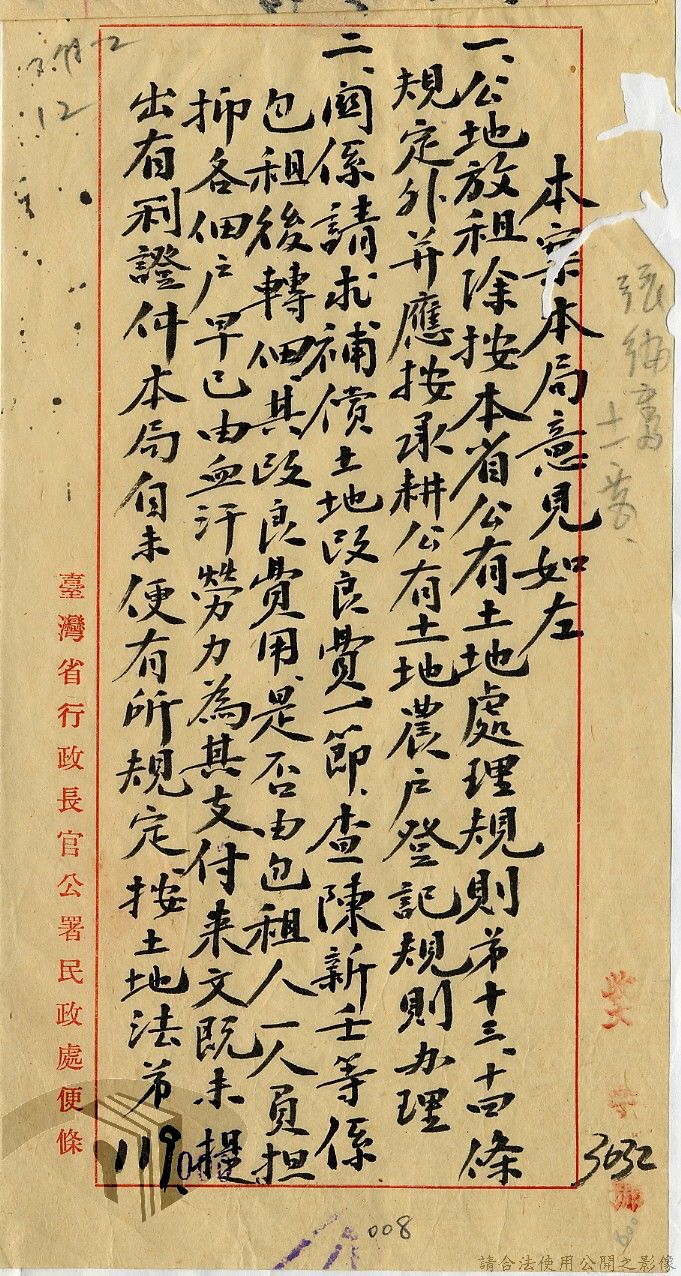 本案本局意見如左
一、公地放租除按本省公有土地處理規則第十三、十四條
規定外并應按承耕公有土地農戶登記規則办理
二、関係請求補償土地改良費一節、查陳新壬等係
包租後轉佃、其改良費用、是否由包租人一人負担
抑各佃戶早已由血汗勞力為其支付来文既未提
出有利證件本局自未便有所規定、按土地法第119
臺灣省行政長官公署民政處便條
12
3632
008
請合法使用公開之影像